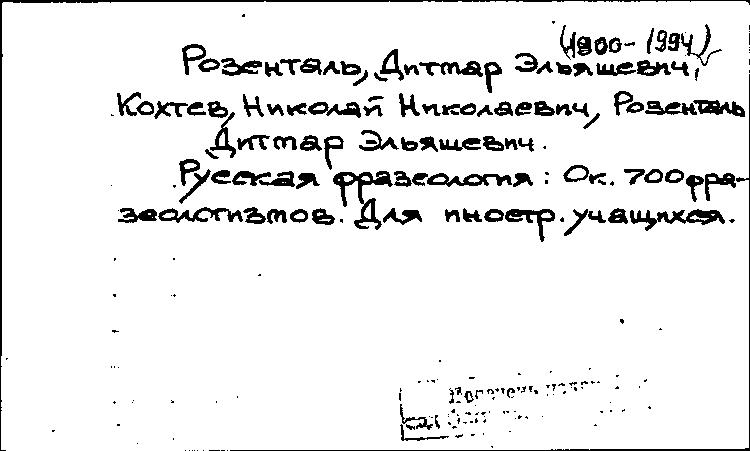 (1900-1994)
Розенталь, Дитмар Эльяшевич,
Кохтев, Николай Николаевич, Розенталь
Дитмар Эльяшевич.
Русская фразеология: Ок. 700 фра-
зеологизмов. Для иностр. учащихся.